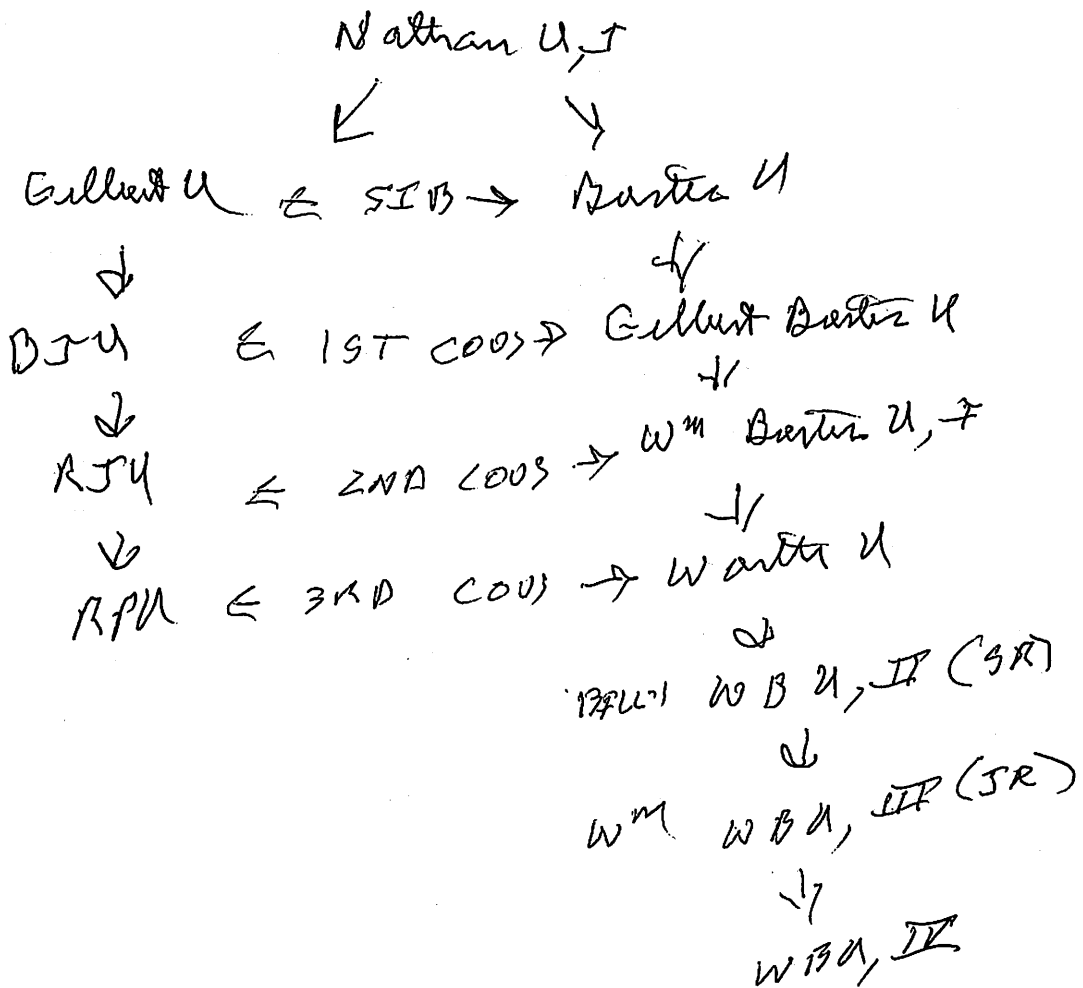 Nathan U, I
Gilbert U ← SIB → Baxter U
BJU ← 1ST COUS → Gilbert Baxter U
RJU ← 2ND COUS → Wm Baxter U, I
RPU ← 3RD COUS → Worth U
"BILL" W B U, II (SR)
Wm W B U, III (JR)
W B U, IV